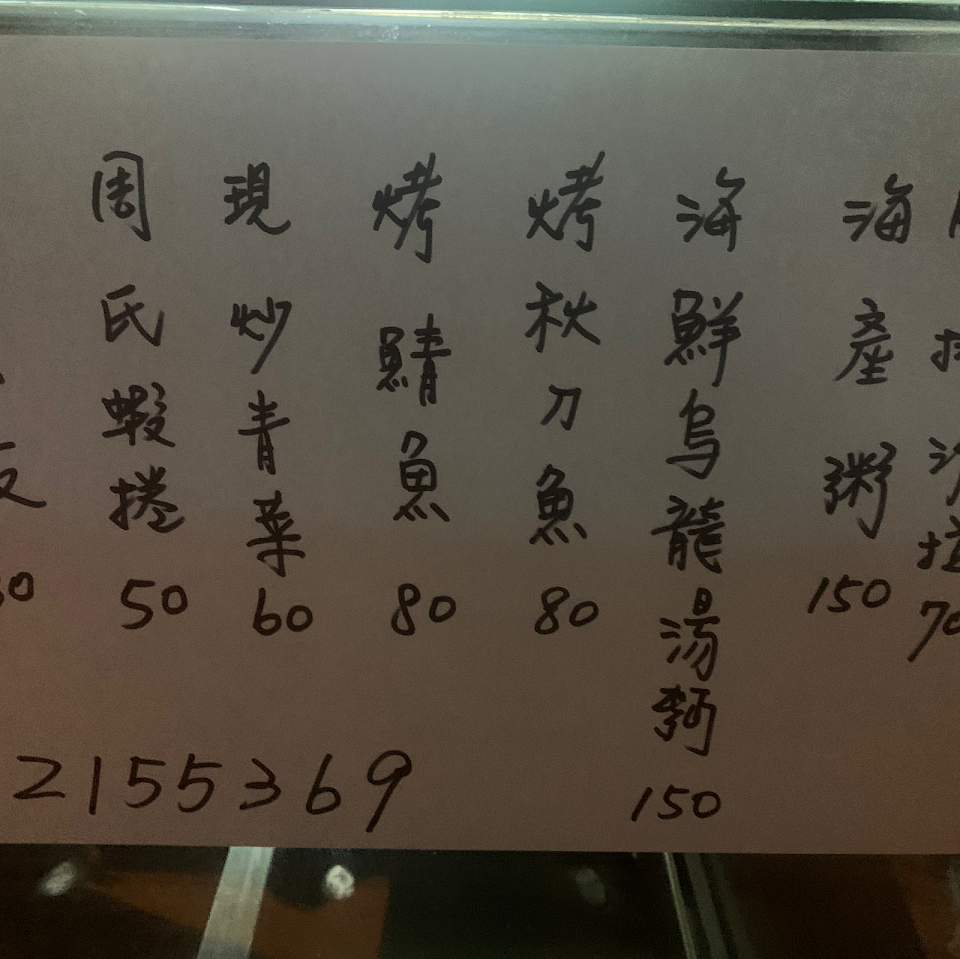 海產粥150
海鮮烏龍湯麪150
烤秋刀魚80
烤鯖魚80
現炒青菜60
周氏蝦捲50
2155369